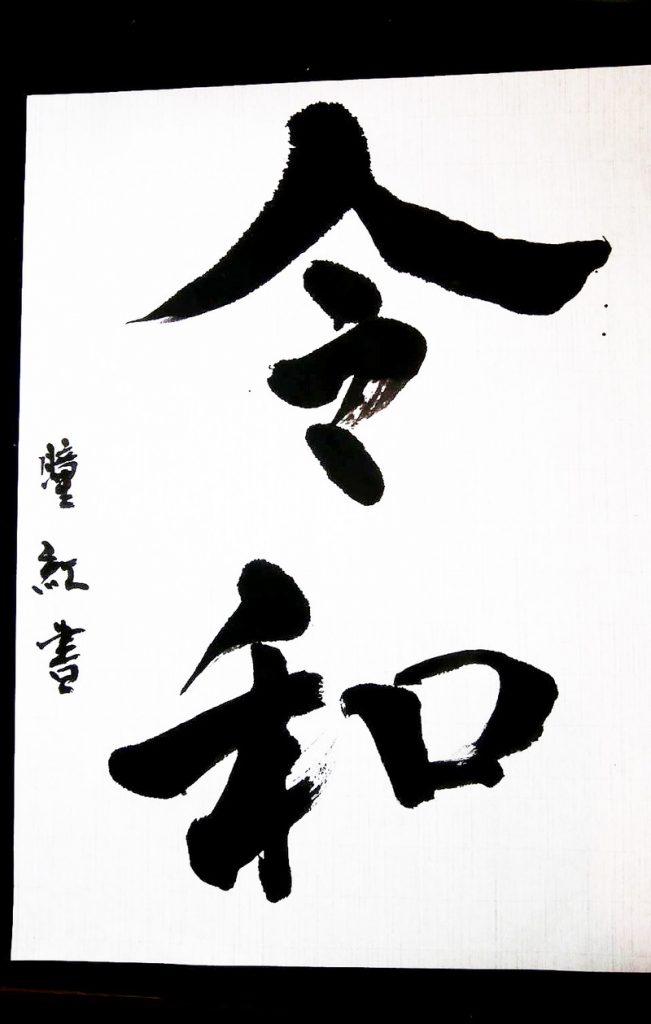 令和
瞳紅書